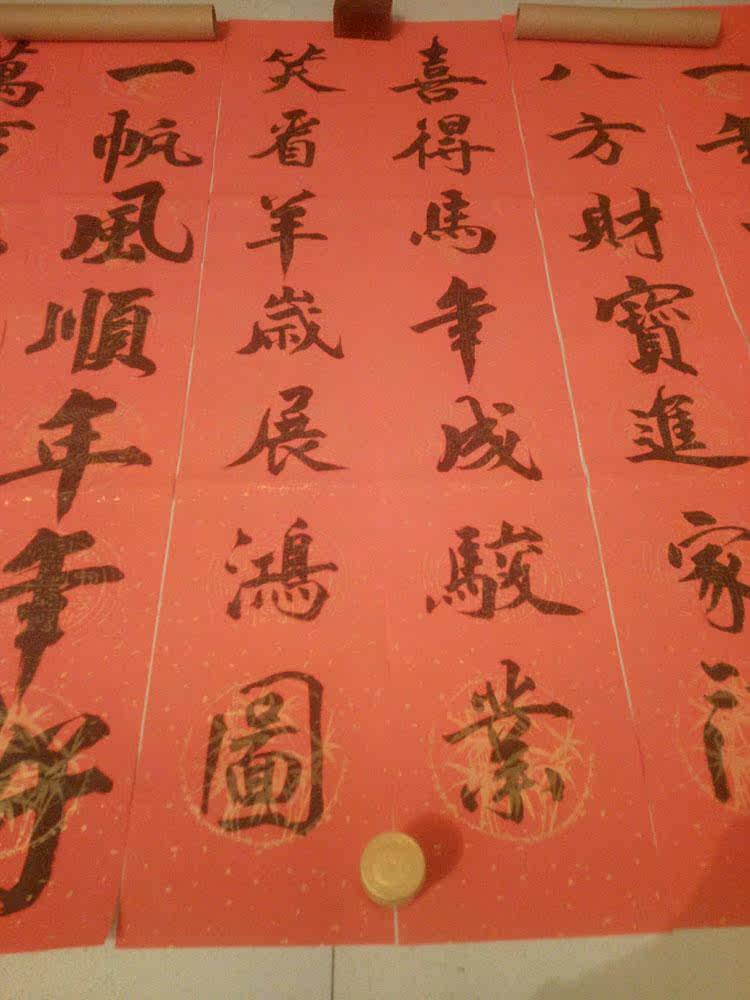 一年
八方財寶進家門
喜得馬年成駿業
笑看羊歲展鴻圖
一帆風順年年好
萬